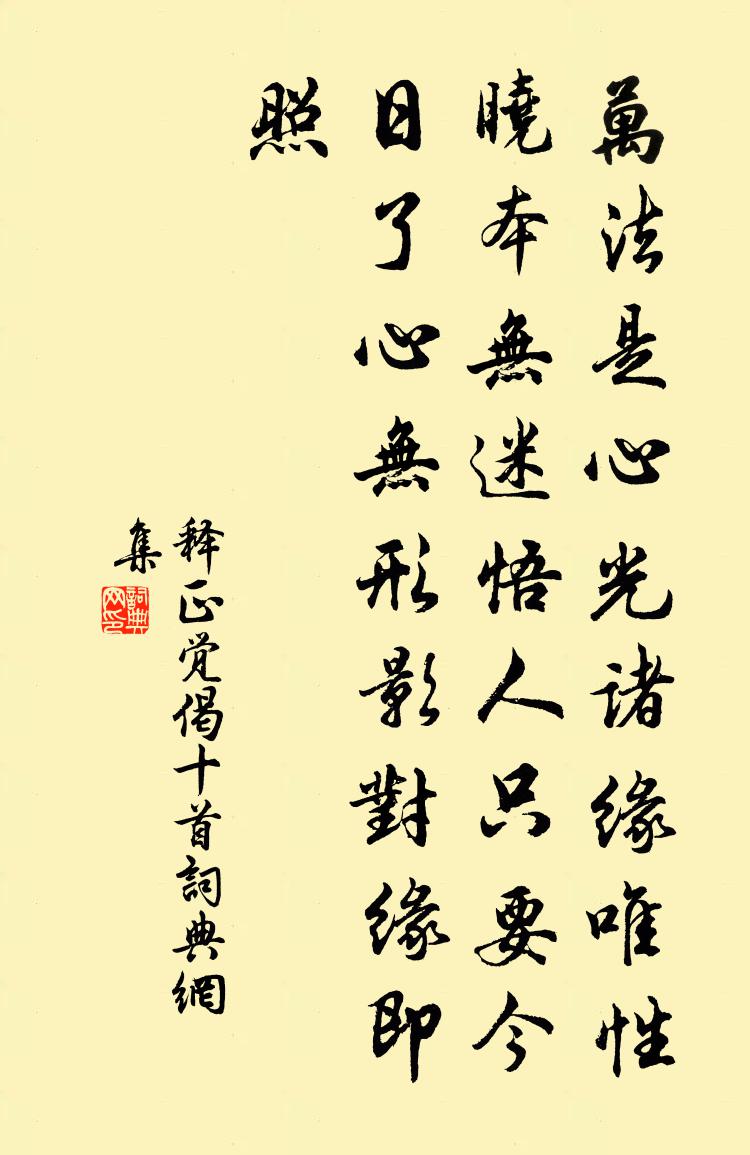 萬法是心光諸緣唯性
曉本無迷悟人只要今
日了心無形影對緣即
照
释正觉偈十首詞典網
集
詞典
网印